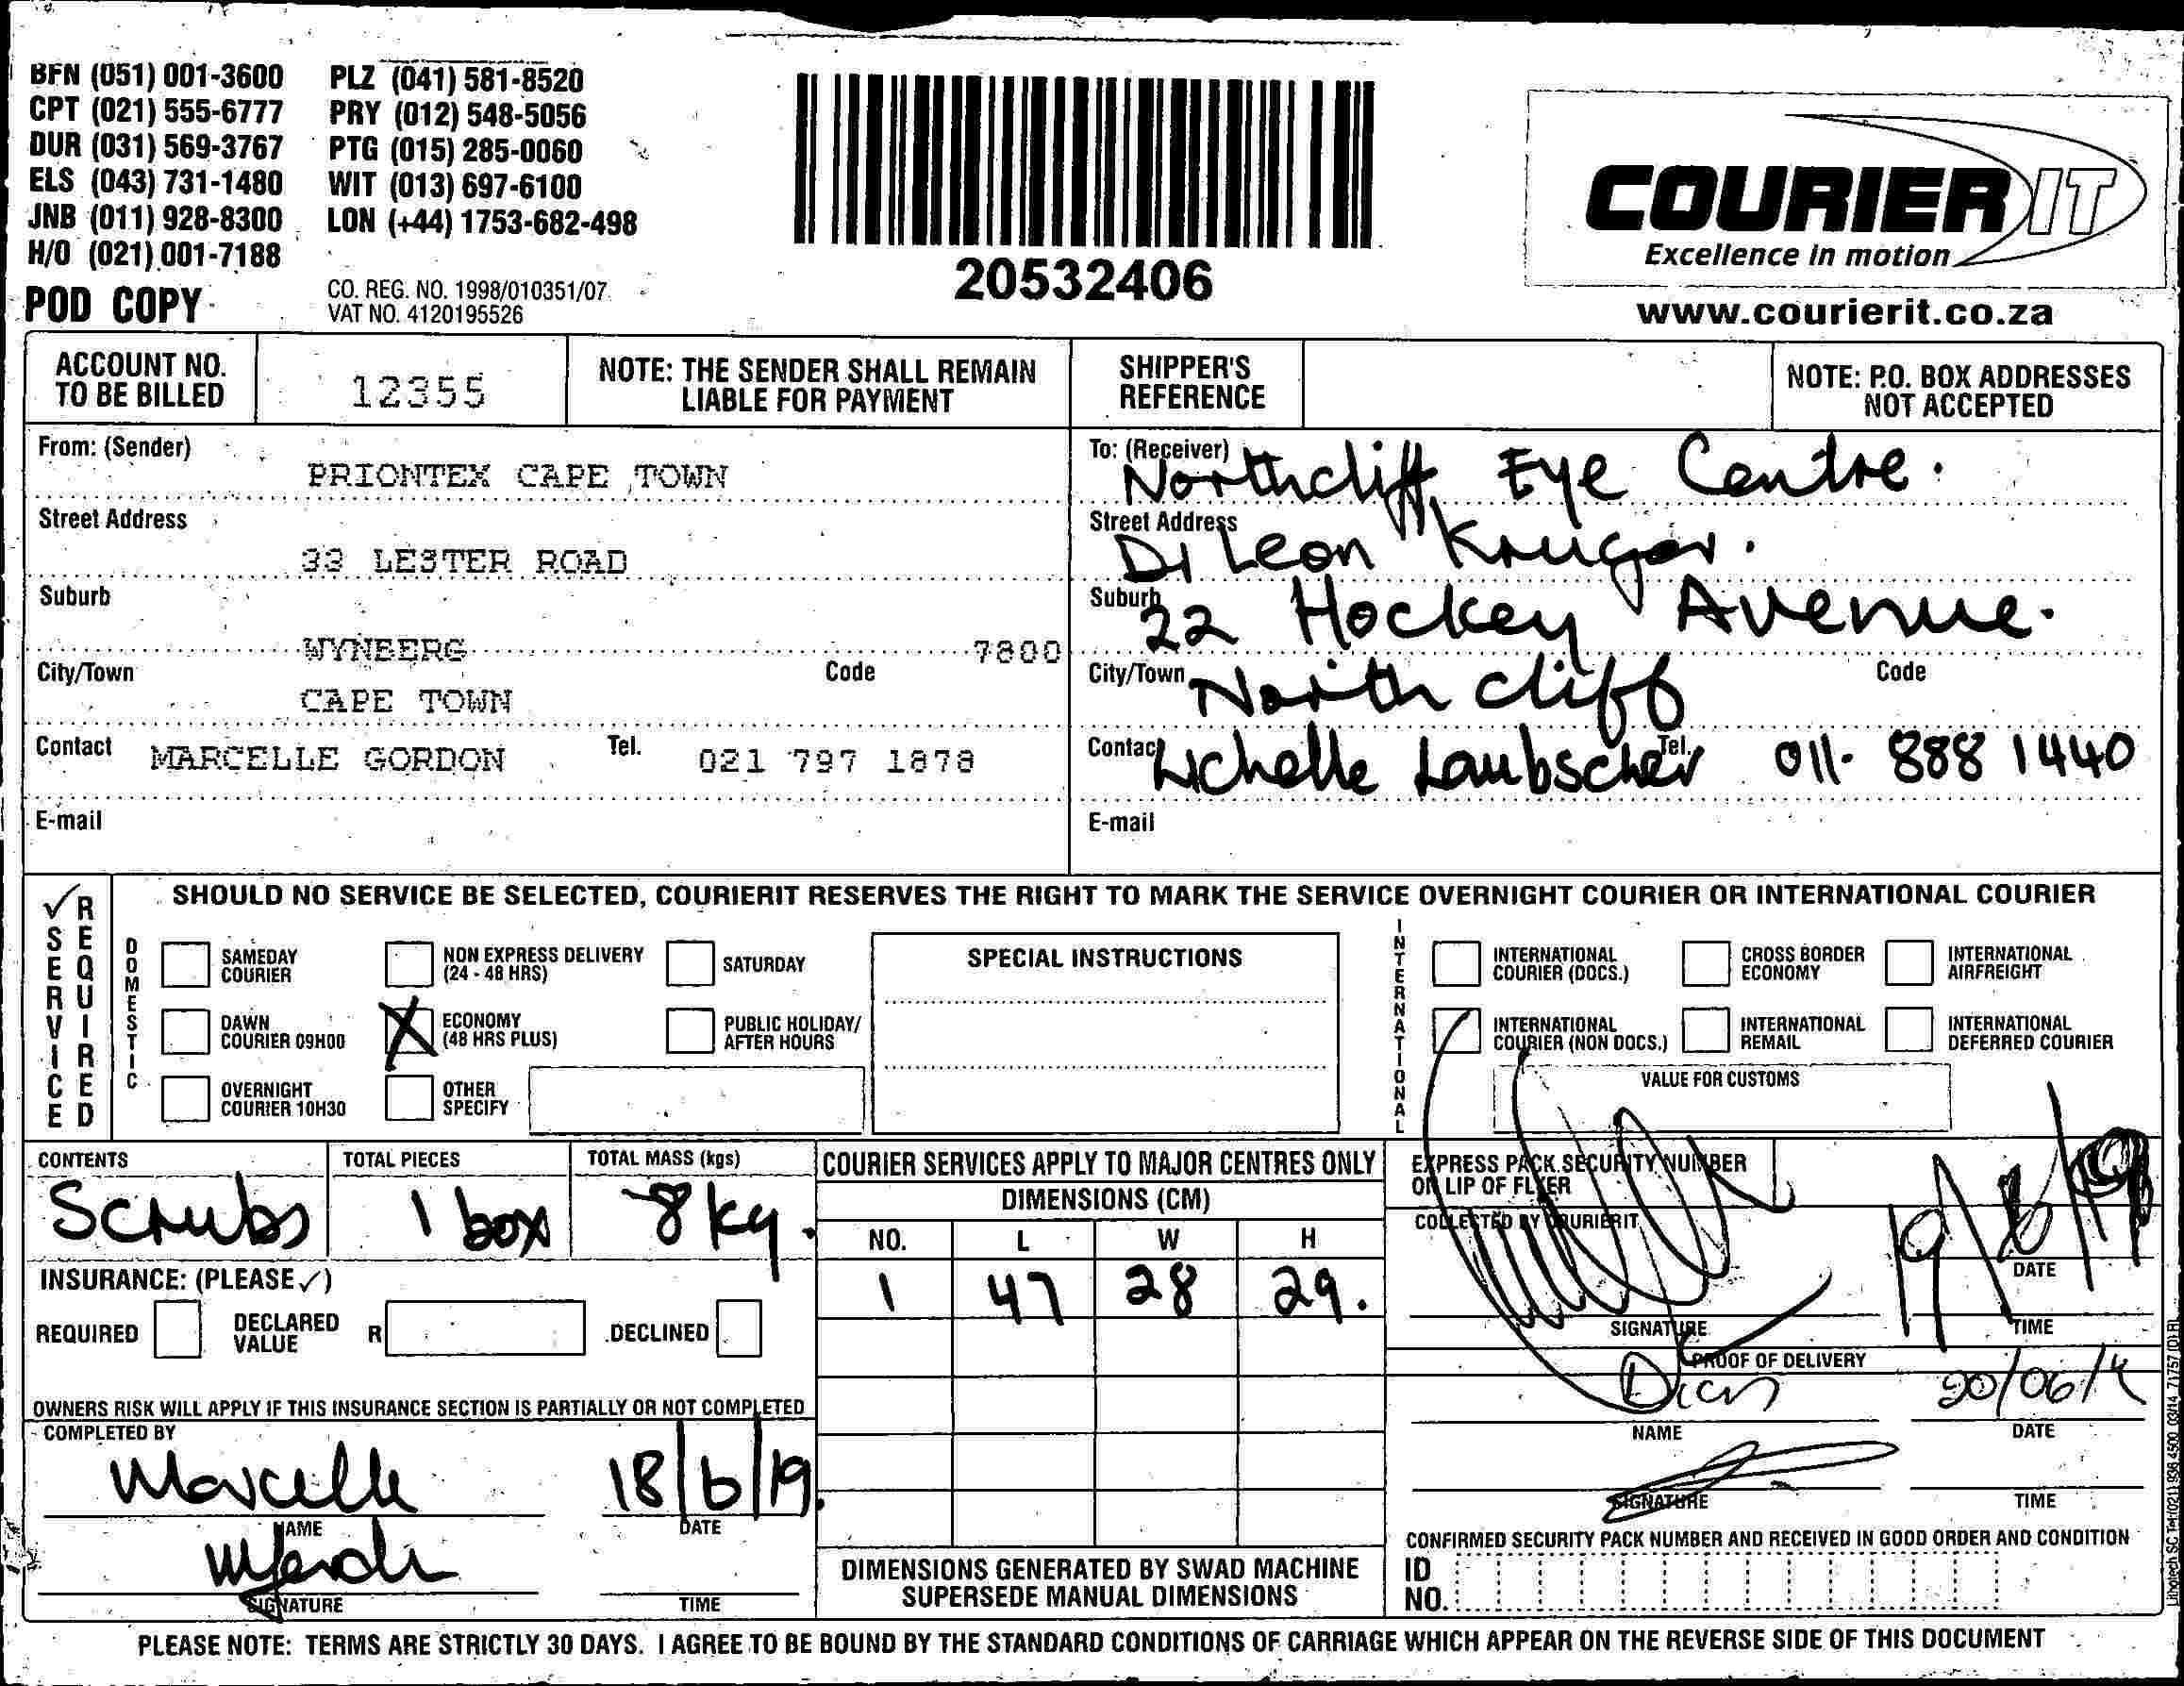 BFN (051) 001-3600 PLZ (041) 581-8520
CPT (021) 555-6777 PRY (012) 548-5056
DUR (031) 569-3767 PTG (015) 285-0060
ELS (043) 731-1480 WIT (013) 697-6100
JNB (011) 928-8300 LON (+44) 1753-682-498
H/O (021) 001-7188
POD COPY
CO. REG. NO. 1998/010351/07
VAT NO. 4120195526
20532406
COURIER IT
Excellence in motion
www.courierit.co.za
ACCOUNT NO.
TO BE BILLED
12355
NOTE: THE SENDER SHALL REMAIN
LIABLE FOR PAYMENT
SHIPPER'S
REFERENCE
NOTE: P.O. BOX ADDRESSES
NOT ACCEPTED
From: (Sender)
PRIONTEX CAPE TOWN
Street Address
33 LESTER ROAD
Suburb
WYNBERG 7800
City/Town Code
CAPE TOWN
Contact MARCELLE GORDON Tel. 021 797 1878
E-mail
To: (Receiver)
Northcliff Eye Centre.
Street Address
Dr Leon Kruger.
Suburb
22 Hockey Avenue.
City/Town Code
North cliff
Contact Lichelle Laubscher Tel. 011. 888 1440
E-mail
✓ SERVICE REQUIRED
SHOULD NO SERVICE BE SELECTED, COURIERIT RESERVES THE RIGHT TO MARK THE SERVICE OVERNIGHT COURIER OR INTERNATIONAL COURIER
DOMESTIC
SAMEDAY
COURIER
NON EXPRESS DELIVERY
(24 - 48 HRS)
SATURDAY
DAWN
COURIER 09H00
X ECONOMY
(48 HRS PLUS)
PUBLIC HOLIDAY/
AFTER HOURS
OVERNIGHT
COURIER 10H30
OTHER
SPECIFY
SPECIAL INSTRUCTIONS
INTERNATIONAL
INTERNATIONAL
COURIER (DOCS.)
CROSS BORDER
ECONOMY
INTERNATIONAL
AIRFREIGHT
INTERNATIONAL
COURIER (NON DOCS.)
INTERNATIONAL
REMAIL
INTERNATIONAL
DEFERRED COURIER
VALUE FOR CUSTOMS
CONTENTS TOTAL PIECES TOTAL MASS (kgs)
Scrubs 1 box 8 kg.
INSURANCE: (PLEASE ✓)
REQUIRED DECLARED
VALUE R DECLINED
OWNERS RISK WILL APPLY IF THIS INSURANCE SECTION IS PARTIALLY OR NOT COMPLETED
COMPLETED BY
Marcelle 18/6/19.
NAME DATE
SIGNATURE TIME
COURIER SERVICES APPLY TO MAJOR CENTRES ONLY
DIMENSIONS (CM)
NO. L W H
1 47 28 29.
DIMENSIONS GENERATED BY SWAD MACHINE
SUPERSEDE MANUAL DIMENSIONS
EXPRESS PACK SECURITY NUMBER
ON LIP OF FLYER
COLLECTED BY COURIERIT
DATE
SIGNATURE TIME
PROOF OF DELIVERY
NAME DATE
SIGNATURE TIME
CONFIRMED SECURITY PACK NUMBER AND RECEIVED IN GOOD ORDER AND CONDITION
ID
NO.
PLEASE NOTE: TERMS ARE STRICTLY 30 DAYS. I AGREE TO BE BOUND BY THE STANDARD CONDITIONS OF CARRIAGE WHICH APPEAR ON THE REVERSE SIDE OF THIS DOCUMENT
Lithotech SC Tel: (021) 936 4500 03/14 71757 (D) RL